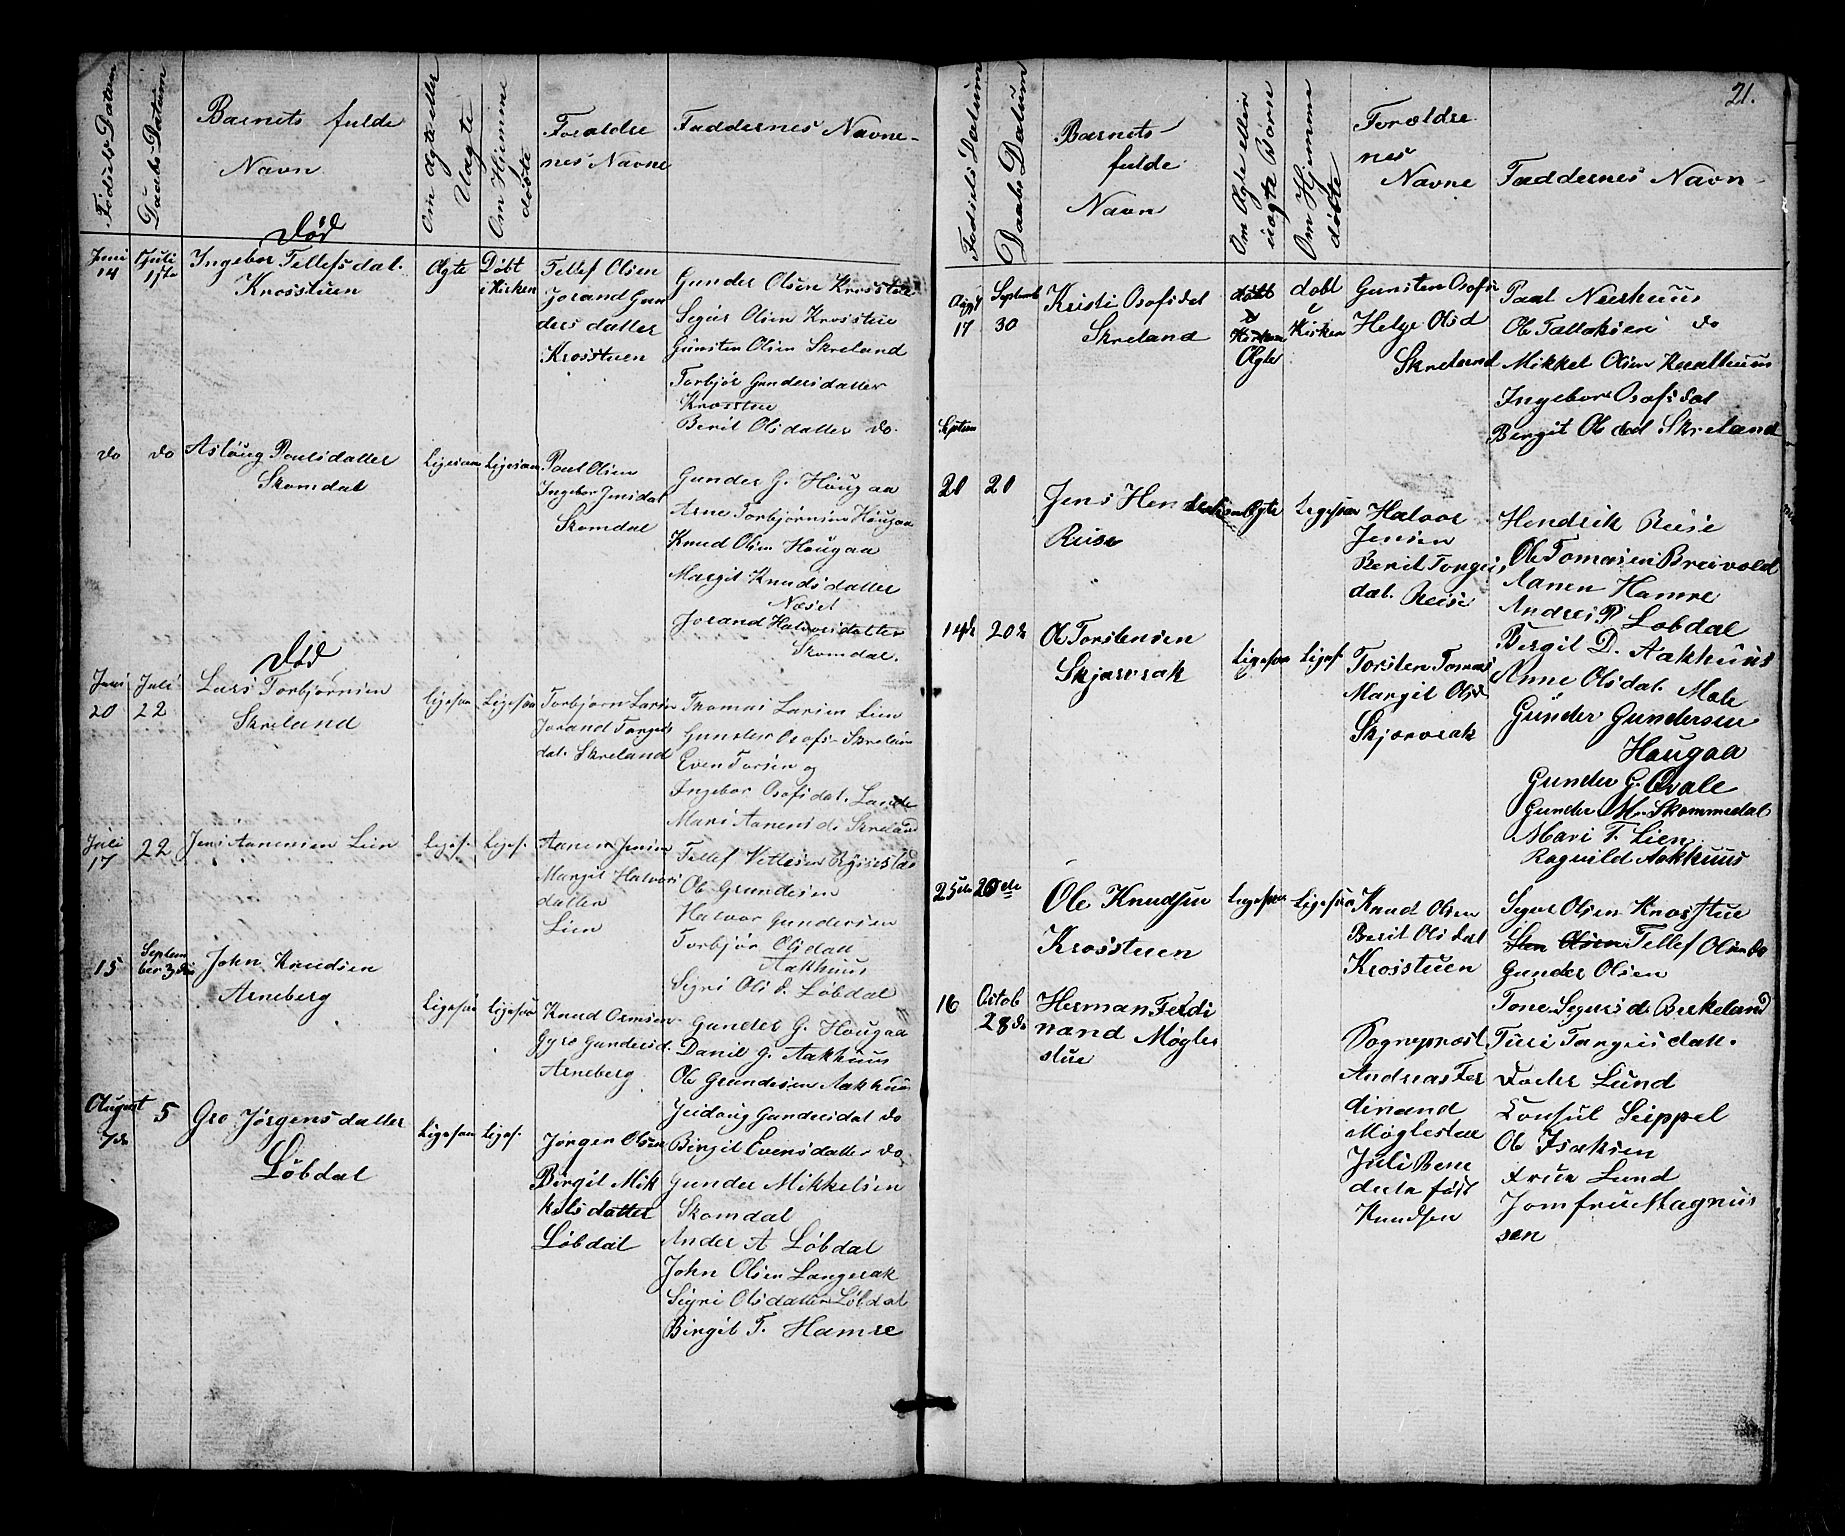 21.
Fødsels Datum
Daabs Datum
Barnets fulde
Navn
Om ægte eller
Uægte
Om Hjemme
døbte
Forældre
nes Navne
Faddernes Navne
Død
Juni
14
Juli
1ste
Ingebor Tellefsdat.
Krosstuen
Ægte
Døbt
i Kirken
Tellef Olsen
Jorand Gun
ders datter
Krosstuen
Gunder Olsen Krosstue
Sigur Olsen Krosstue
Gunsten Olsen Skreland
Torbjør Gundersdatter
Krosstue
Berit Olsdatter do.
do
do
Aslaug Poulsdatter
Skomdal
Ligesaa
Ligesaa
Poul Olsen
Ingebor Jensdat
Skomdal
Gunder G. Hougaa
Arne Torbjørnsen Hougaa
Knud Olsen Hougaa
Margit Knudsdatter
Næset
Jorand Halvorsdatter
Skomdal.
Død
Juni
20
Juli
22
Lars Torbjørnsen
Skreland
Ligesaa
Ligesaa
Torbjørn Larsen
Jorand Torges
dat. Skreland
Tomas Larsen Lien
Gunder Osofs. Skreland
Even Torsen og
Ingebor Osofsdat. Lande
Mari Aanensd. Skreland
Juli
17
22
Jens Aanensen Lien
Ligesf.
Ligesf.
Aanen Jensen
Margit Halvors
datter
Lien
Tellef Vetlesen
Ole Gundersen
Halvor Gundersen
Torbjør Olsdatt
Aakhuus
Sigri Olsd. Løbdal
15
Septem
ber 3die
John Knudsen
Arneberg
Ligesaa
Ligesaa
Knud Ormsen
Gyro Gundersd.
Arneberg
Gunder G. Hougaa
Daniel G. Aakhuus
Ole Gundersen Aakhuus
Gundersdat do
Birgit Evensdatter do
August
7de
5
Gro Jørgensdatter
Løbdal
Ligesaa
Ligesf.
Jørgen Olsen
Birgit Mik
kelsdatter
Løbdal
Gunder Mikkelsen
Skomdal
Ander A Løbdal
John Olsen Langerak
Sigri Olsdatter Løbdal
Birgit T. Hamre
Fødsels Datum
Daabs Datum
Barnets
fulde
Navn
Om Ægte eller
uægte Børn
Om Hjemme
døbte
Forældre
nes
Navne
Faddernes Navn
August
17
Septemb
30
Kristi Osofsdat
Skreland
døbt
i
Kirken
Ægte
døbt
i
Kirken
Gunsten Osofs
Helge Olsd
Skreland
Paal Neerhuus
Ole Tallaksen do
Mikkel Olsen
Ingebor Osofsdat
Birgit Olsdat Skreland
Septem
20
20
Jens Hendriksen
Reise
Ægte
Ligesaa
Halvor
Jensen
Berit Torgus
dat. Reise
Hendrik Reise
Ole Tomasen Breivold
Aanen Hamre
Andres P Løbdal
Bergit D. Aakhuus
14de
20de
Ole Torstensen
Skjævrak
Ligesaa
Ligesf.
Torsten Tomas
Margit Olsd
Skjævrak
Anne Olsdat. Mole
Gunder Gundersen
Hougaa
Gunder G. Qvale
Gunder M. Skommedal
Mari T. Lien
Ragnild Aakhuus
25de
20de
Ole Knudsen
Krosstuen
Ligesaa
Ligesaa
Knud Olsen
Berit Olsdat
Krosstuen
Sigur Olsen Krosstue
Sten Olsen Tellef Olsen do
Gunder Olsen
Tone Sigursd. Birkeland
Turi Torgusdatt.
16
Octob
28de
Herman Ferdi
nand Møgles
stue
Sogneprest
Andreas Fer
dinand
Møglestue
Juli Bene
dicte født
Knudsen
Lund
Consul Seippel
Ole Isaksen
Frue Lund
Jomfrue Magnus
sen